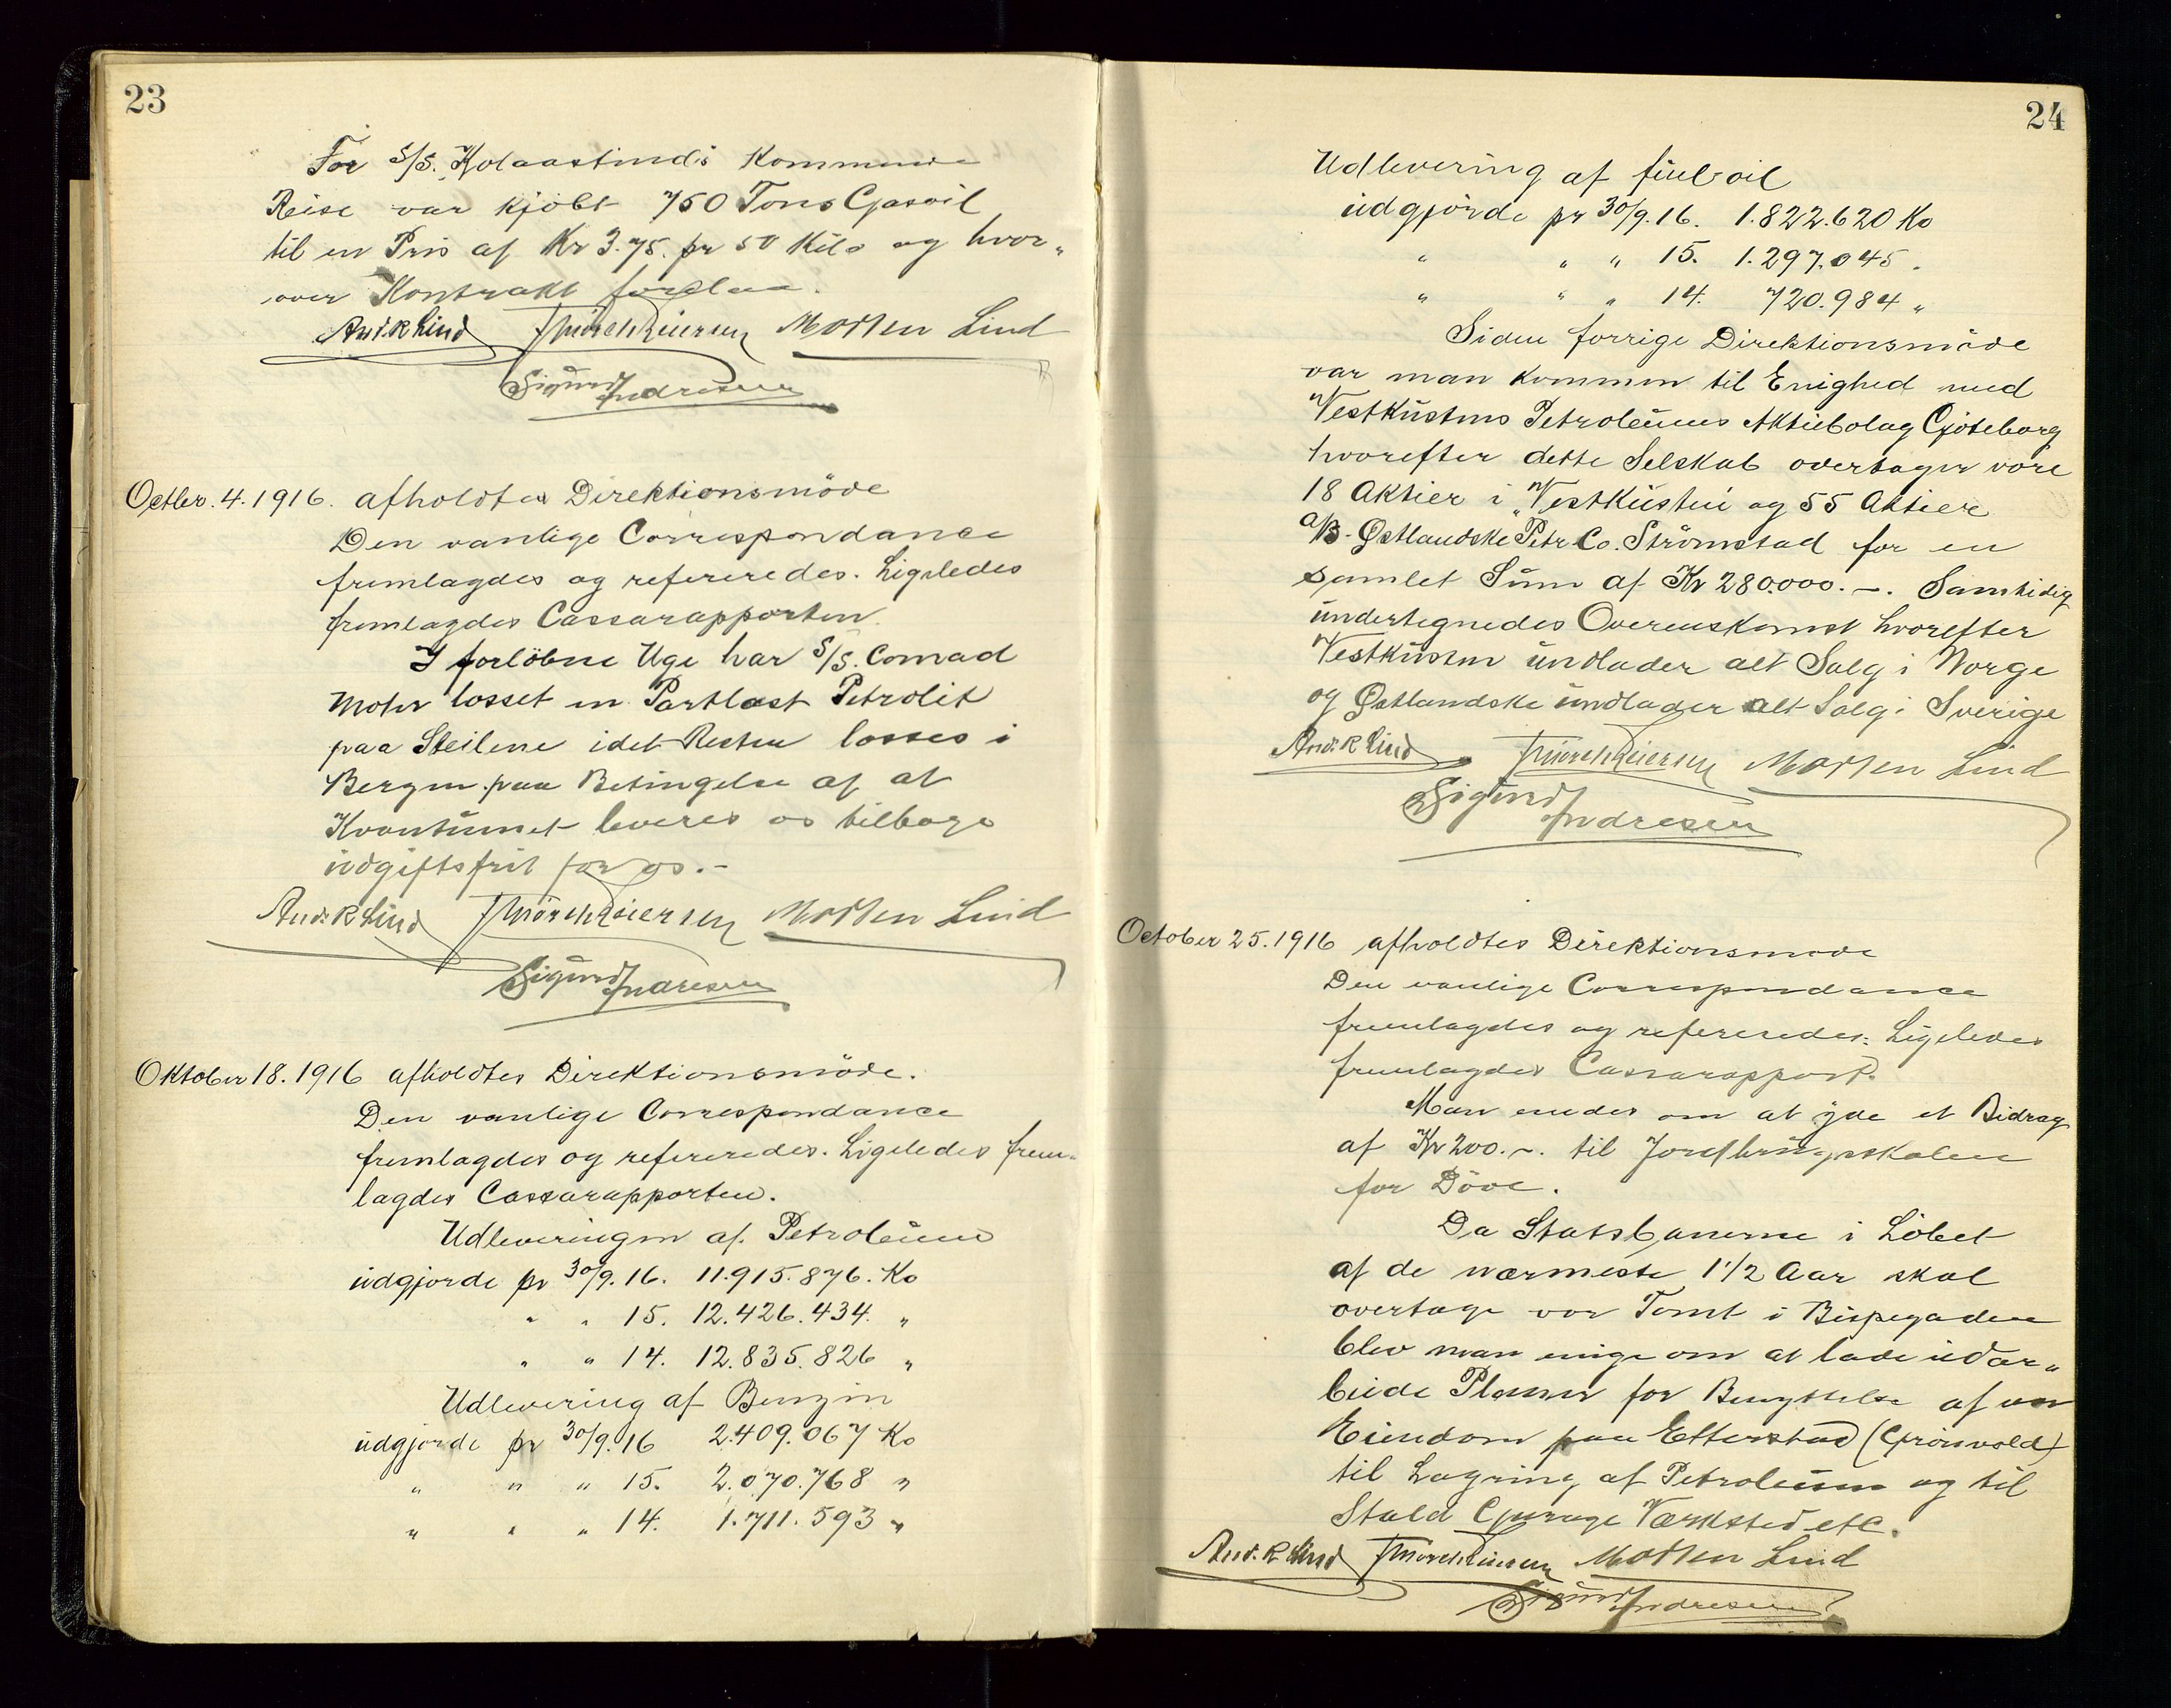 23
For S/S. Kolaastinds kommende
Reise var kjöbt 750 Tons Gasoil
til en Pris af Kr 3.75. pr 50 Kilo og hvor„
over Kontrakt forelaa.
And. R Lind Morten Lind
Sigurd Andresen
Octbr. 4. 1916. afholdtes Direktionsmöde
Den vanlige Correspondance
fremlagdes og refereredes. Ligeledes
fremlagdes Cassarapporten.
I forlöbne Uge har S/S. Conrad
Mohr losset en Partlast Petrolit
paa Steilene idet Resten losses i
Bergen paa Betingelse af at
Kvantumet leveres os tilbage
udgiftsfrit for os.–
And. R Lind Morten Lind
Sigurd Andresen
Oktober 18. 1916 afholdtes Direktionsmöde.
Den vanlige Correspondance
fremlagdes og refereredes. Ligeledes frem„
lagdes Cassarapporten.
Udleveringen af Petroleum
udgjorde pr 30/9. 16. 11.915.876. Ko
" " 15. 12.426.434. "
" " 14. 12.835.826 "
Udlevering af Benzin
udgjorde pr 30/9. 16 2.409.067 Ko
" " " 15. 2.070.768 "
" " " 14. 1.711.593 "
24
Udlevering af fuel oil
udgjorde pr 30/9. 16. 1.822.620 Ko
" " " 15. 1.297.045.
" " " 14. 720.984 "
Siden forrige Direktionsmöde
var man kommen til Enighed med
Vestkustens Petroleums Aktiebolag Gjöteborg
hvorefter dette Selskab overtager vore
18 Aktier i „Vestkusten og 55 Aktier
A/B. Østlandske Petr. Co. Strömstad for en
samlet Sum af Kr 280.000.–. Samtidig
undertegnedes Overenskomst hvorefter
Vestkusten undlader alt Salg i Norge
og Østlandske undlader alt Salg i Sverige
And. R Lind Morten Lind
Sigurd Andresen
October 25. 1916 afholdtes Direktionsmöde
Den vanlige Correspondance
fremlagdes og refereredes. Ligeledes
fremlagdes Cassarapport.
Man enedes om at yde et Bidrag
af Kr 200.–. til
for Döve.
Da Statsbanerne i Löbet
af de nærmeste 1 1/2 Aar skal
overtage vor Tomt i Bispegaden
blev man enige om at lade udar„
beide Planer for Benyttelse af vor
Eiendom paa Etterstad (Grönvold)
til Lagring af Petroleum og til
Stald Garage Værksted etc.
And. R Lind Morten Lind
Sigurd Andresen